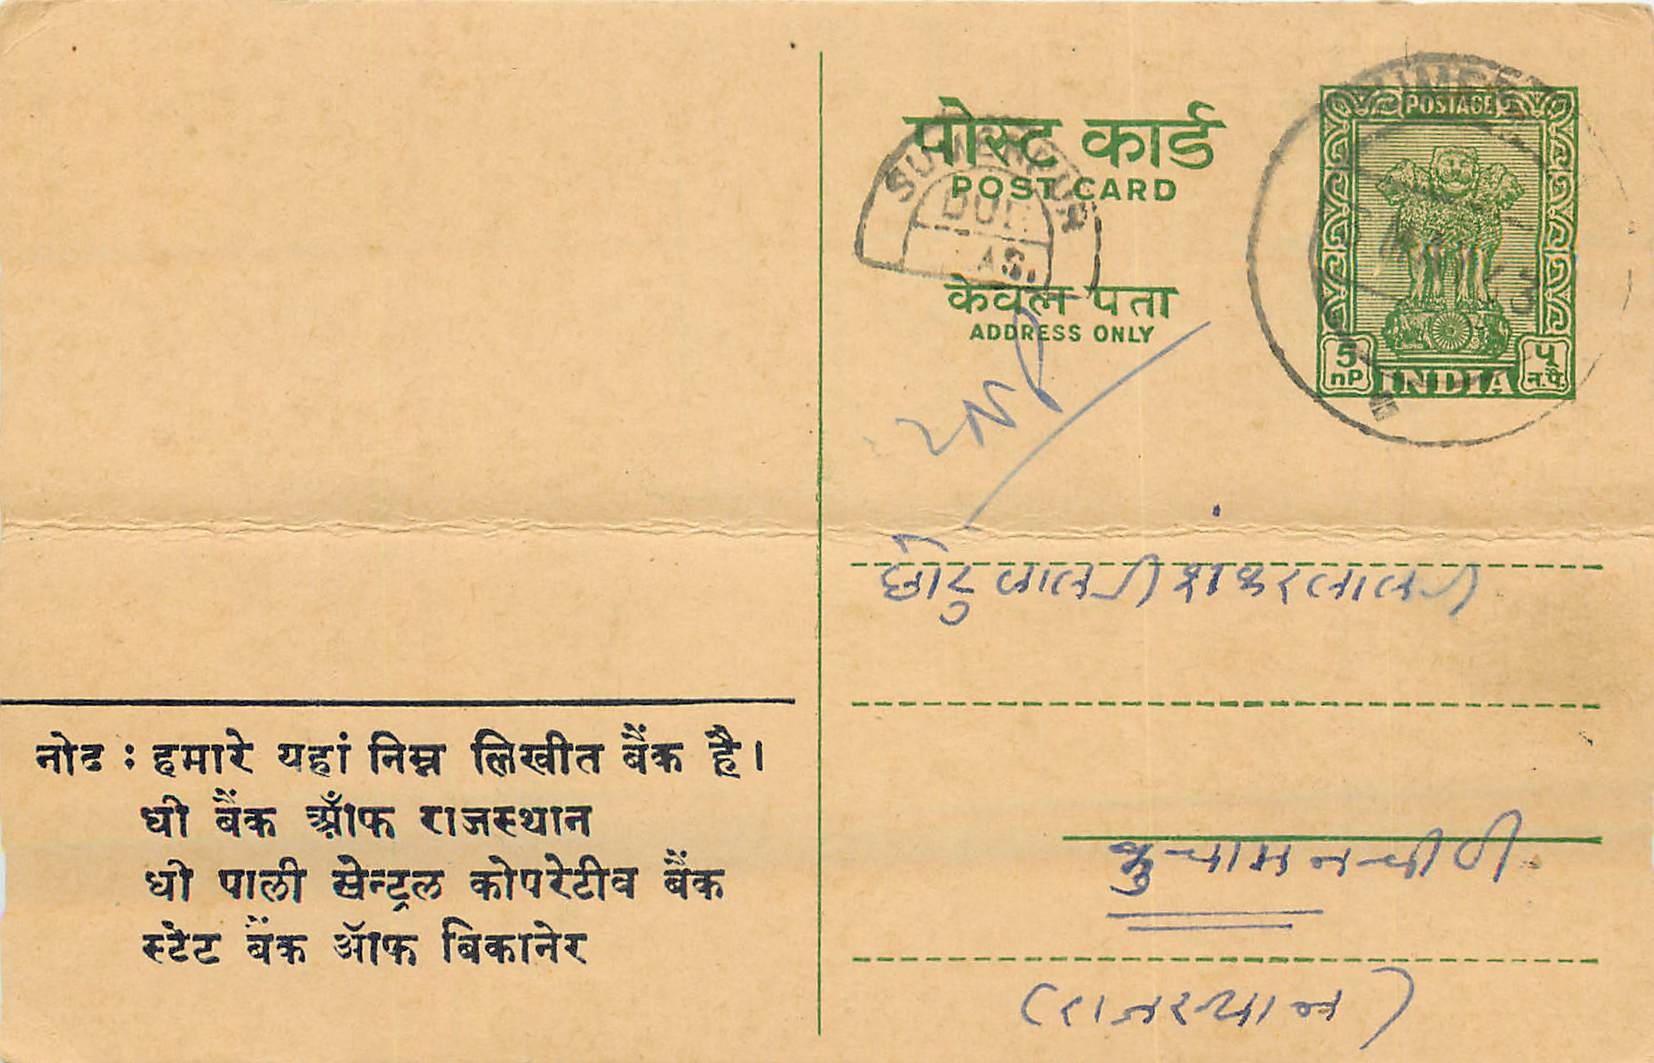 पोस्ट कार्ड
POST CARD
SUMERPUR
DUE
AS.
केवल पता
ADDRESS ONLY
POSTAGE
5 nP INDIA ५ न.पै.
छोटुलालजी शंकरलालजी
कुचामनसीटी
(राजस्थान)
नोट : हमारे यहां निम्न लिखीत बैंक है।
धी बैंक ऑफ राजस्थान
धी पाली सेन्ट्रल कोपरेटीव बैंक
स्टेट बैंक ऑफ बिकानेर